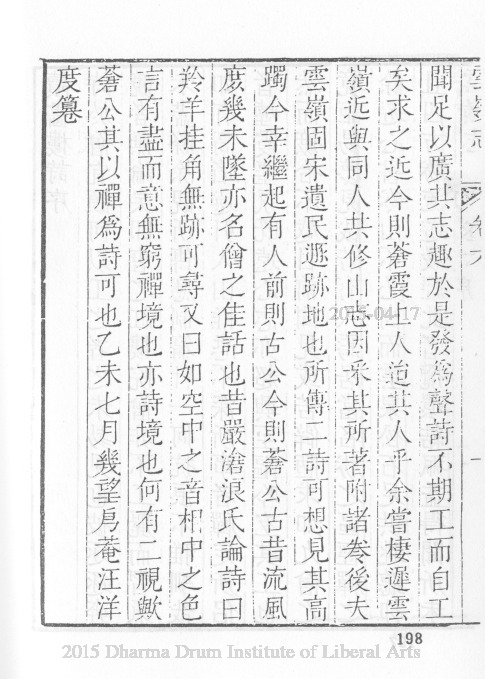 雲嶺志 卷六 一
聞足以廣其志趣於是發為聲詩不期工而自工
矣求之近今則蒼霞上人洵其人乎余嘗棲遲雲
嶺近與同人共修山志因采其所著附諸卷後夫
雲嶺固宋遺民遯跡地也所傳二詩可想見其高
躅今幸繼起有人前則古公今則蒼公古昔流風
庶幾未墜亦名僧之佳話也昔嚴滄浪氏論詩曰
羚羊挂角無跡可尋又曰如空中之音相中之色
言有盡而意無窮禪境也亦詩境也何有二視歟
蒼公其以禪為詩可也乙未七月幾望舄菴汪洋
度篹
2015-04-17
198
2015 Dharma Drum Institute of Liberal Arts